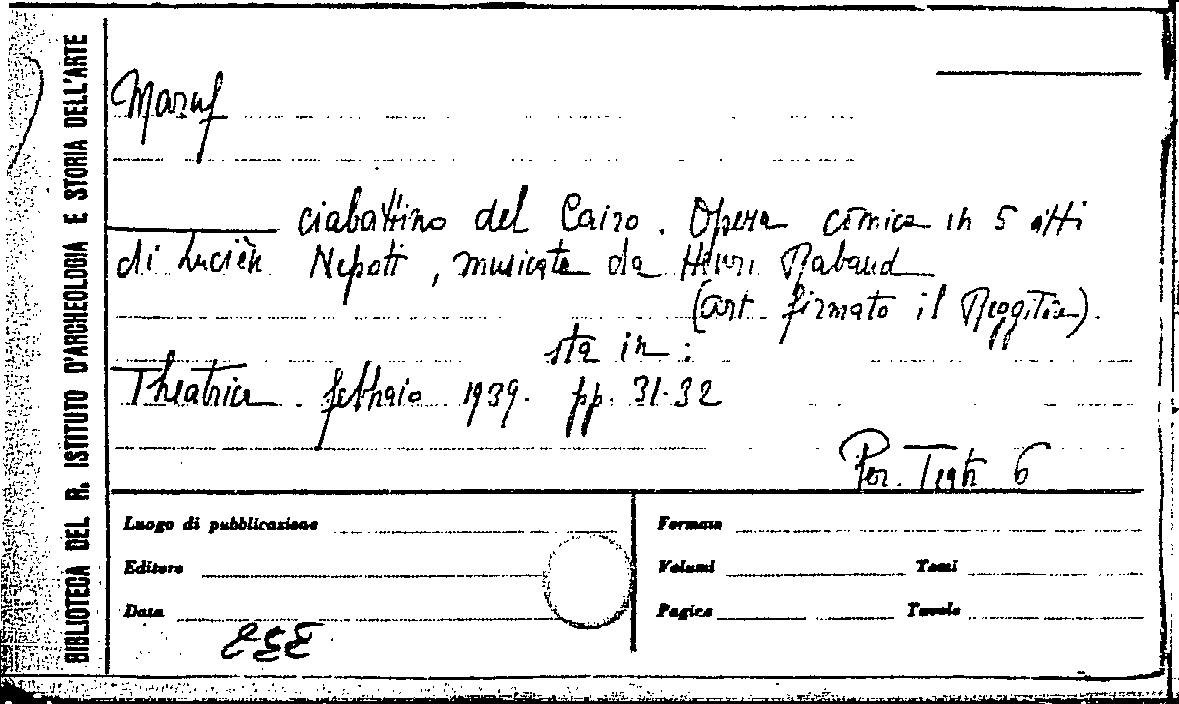 BIBLIOTECA DEL R. ISTITUTO D'ARCHEOLOGIA E STORIA DELL'ARTE
Maruf
ciabattino del Cairo. Opera comica in 5 atti
di Lucien Nepoti, musicata da Henri Rabaud
(art. firmato il
sta in:
Theatrica. febbraio 1939. pp. 31-32
Per. Teatr 6
Luogo di pubblicazione
Formato
Editore
Volumi Tomi
Data
Pagine Tavole